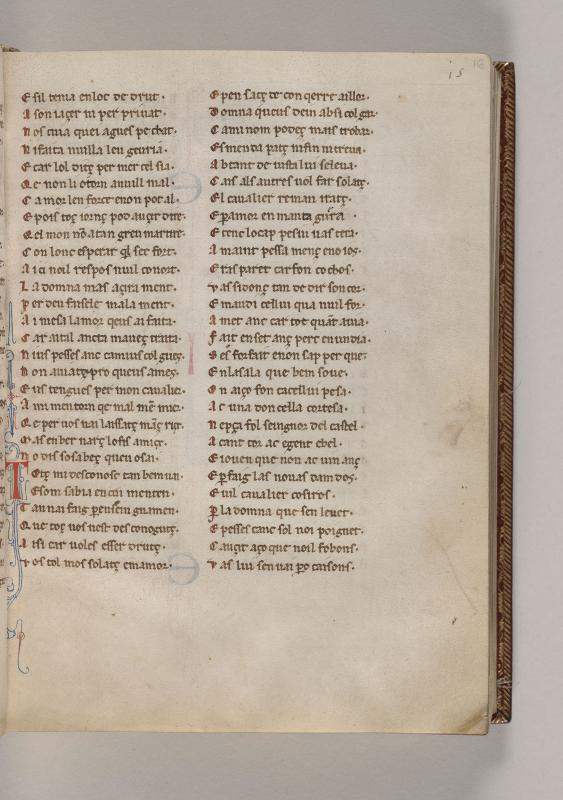 15
16
E sil tenia en loc de drut·
A son iaçer ni per priuat·
N os cuia quei agues pechat·
N i faita nuilla leu geuria·
E car lol ditç per mer cel sia·
Q e non li otorn a nuill mal·
C amor len force e non pot al·
E pois toç iornç pod auçir dire·
Q el mon nō a tan greu martire·
C on lonc esperar q̄l sec fort·
A ici noil respos nuil conort·
L a domna mas açira ment·
P er deu faisele mala ment·
A i mesa lamor qeus ai faita·
C ar aital ancta mauetç traita·
N ius pesses anc camius colgues·
N on auiatç pro queius ames·
E us tengues per mon caualier·
A mi
Q e per uos nai laissatç
M as en bet
N o dis sosabeç quen osai·
T otç mi desconosc tan bem uai·
E som sabia en cui menten·
T an nai faig per uostre
Q ue toç uos nest desconogutç·
A isi car uoles esser drutç·
V os tol mos solatç em amor·
E pen saçç de con qerre aillor·
D omna queus dein ab si colgar·
C a mi nom podeç mais trobar·
E smenda patç ni fin ni treua·
A b tant de iusta lui se leua·
C ais als autres uol far solatç·
E l caualier reman iratç·
E per amor en manta
E tenc lo cap
A maint pessa
E ras paret car fon cochos·
V as si donç tan de dir son cor·
E maudi cellui qua nuil for·
A met anc car tot
F ait en set anç perc en un dia·
S es forfait e non sap per que·
E n la sala que bem soue·
O n aiço fon
A c una don cella cortesa·
N epça fol seingnor del castel·
A cant cor ac e gent e bel·
E iouen que non ac un anç
E per faig las nouas
E uil caualier cosiros·
P er la domna que sen leuet·
E pesses canc sol noi poignet·
C auçit aço que noil fo bons·
V as lui sen uai